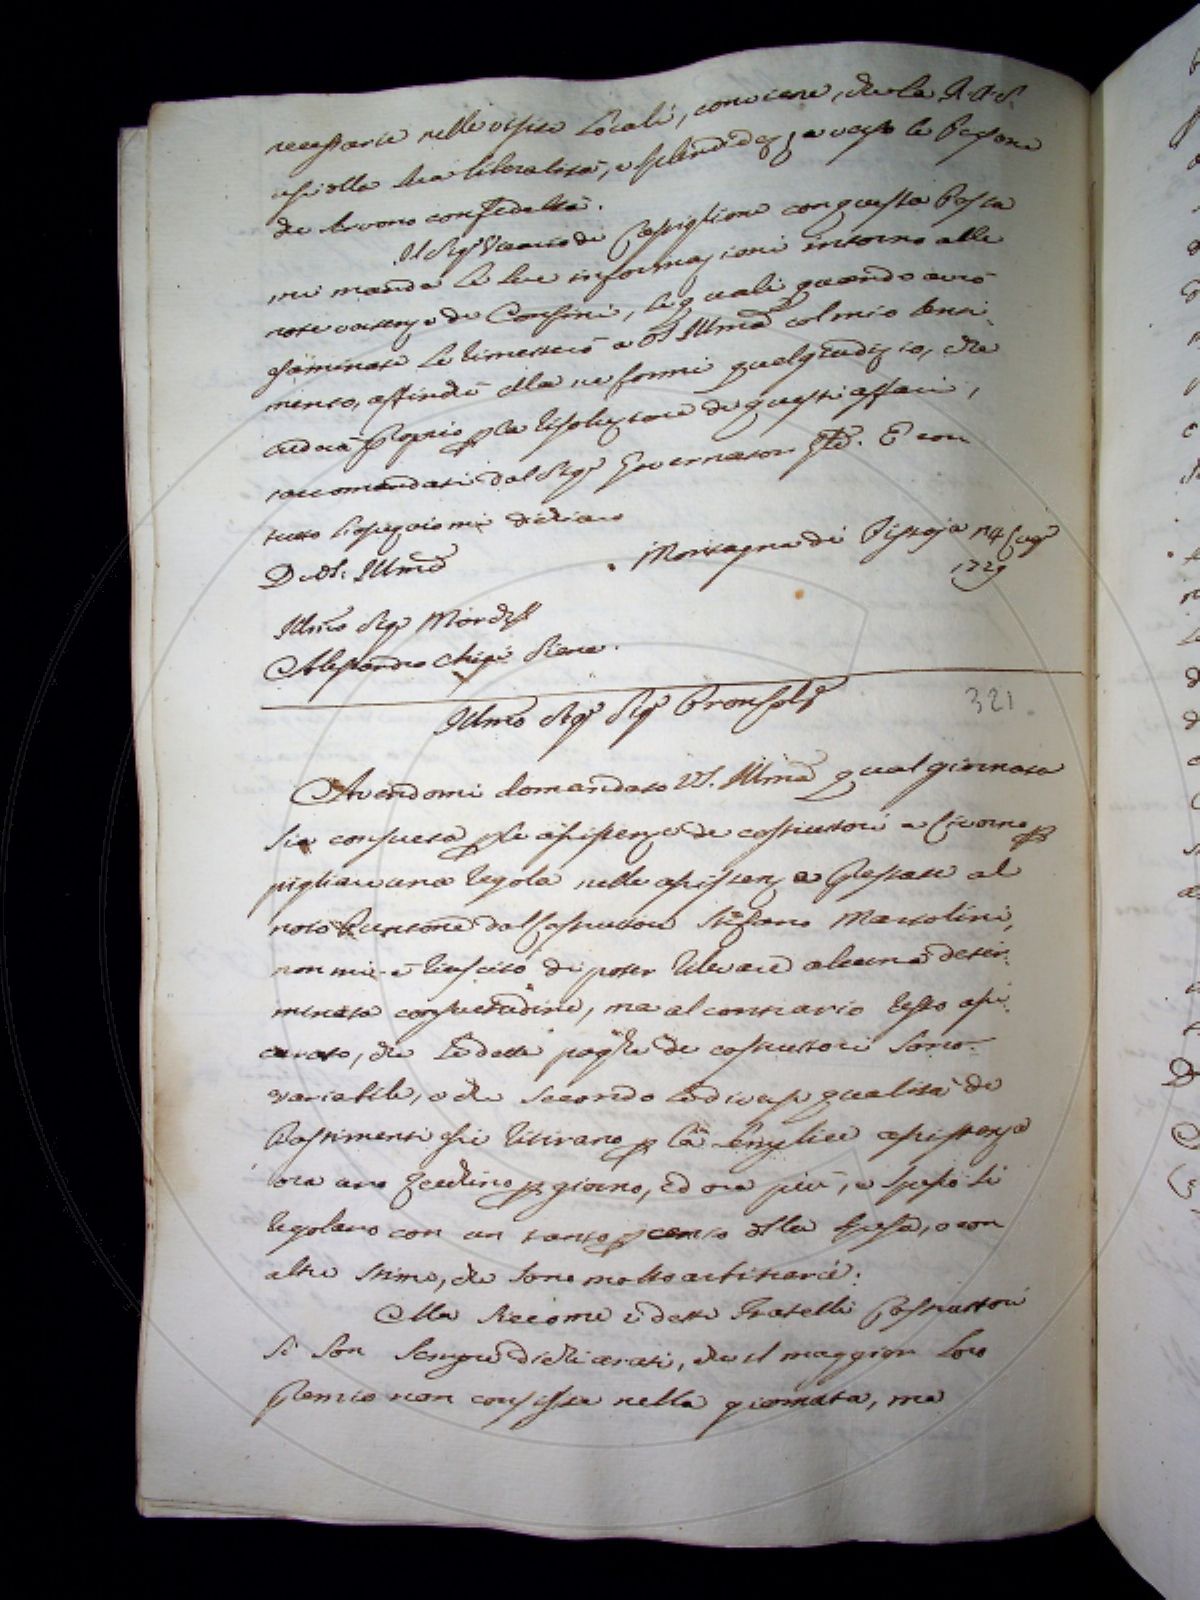 necessarie nelle visite locali, conviene, che la R.A.S.
usi della sua liberalità, e splendidezza verso le Persone
che servono con fedeltà.
Il Sigr Vicario di Castiglione con questa Posta
mi manda le sue informazioni intorno alle
note vertenze de Confini, le quali quando avrò
esaminate le rimetterò a VS. Illma col mio senti-
mento, affinché ella ne formi quel giudizio, che
crederà proprio p la risoluzione di questi affari,
raccomandati dal Sigr Governatore Pnte. E con
tutto l'ossequio mi dichiaro
Di VS. Illma Montagna di Pistoja 14 Lug.
1729
Illmo Sigr Mondej
Alessandro Chigi Siena.
Illmo Sigr Sigr Pron 321
Avendomi domandato VS. Illma qual giornata
sia consueta p le assistenze de costruttori a Livorno p
pigliare una regola nelle assistenze prestate al
noto Puntone dal Costruttore Stefano Mattolini,
non mi è riuscito di poter rilevare alcuna deter-
minata consuetudine, ma al contrario resto assi-
curato, che le dette paghe de costruttori sono
variabile, e che secondo le diverse qualità de
Bastimenti essi ritirano p la semplice assistenza
ora uno zecchino p giorno, ed ora più, e spesso si
regolano con un tanto p cento della spesa, o con
altre stime, che sono molto arbitrarie.
Ma siccome i detti Fratelli Costruttori
si son sempre dichiarati, che il maggior loro
premio non consista nella giornata, ma